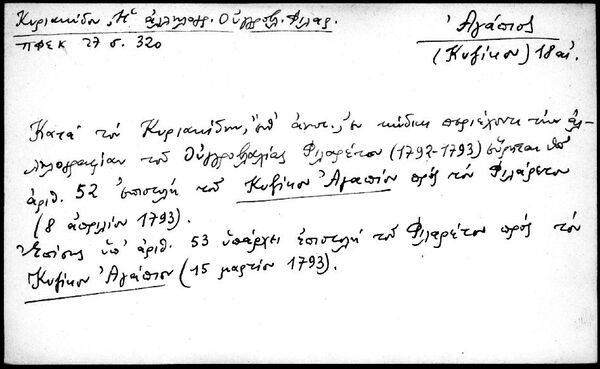 Κυριακίδου, Ἡ ἀλληλογρ. Οὑγγροβλ. Φιλαρ.
ΠΦΕΚ 27 σ. 320
Ἀγάπιος
(Κυζίκου) 18 αἰ.
Κατά τόν Κυριακίδην, ἔνθ' ἀνωτ., ἐν κώδικι περιέχοντι τήν ἀλ-
ληλογραφίαν τοῦ Οὑγγροβλαχίας Φιλαρέτου (1792-1793) εὕρηται ὑπ'
ἀριθ. 52 ἐπιστολή τοῦ Κυζίκου Ἀγαπίου πρός τόν Φιλάρετον
(8 ἀπριλίου 1793).
Ἐπίσης ὑπ' ἀριθ. 53 ὑπάρχει ἐπιστολή τοῦ Φιλαρέτου πρός τόν
Κυζίκου Ἀγάπιον (15 μαρτίου 1793).